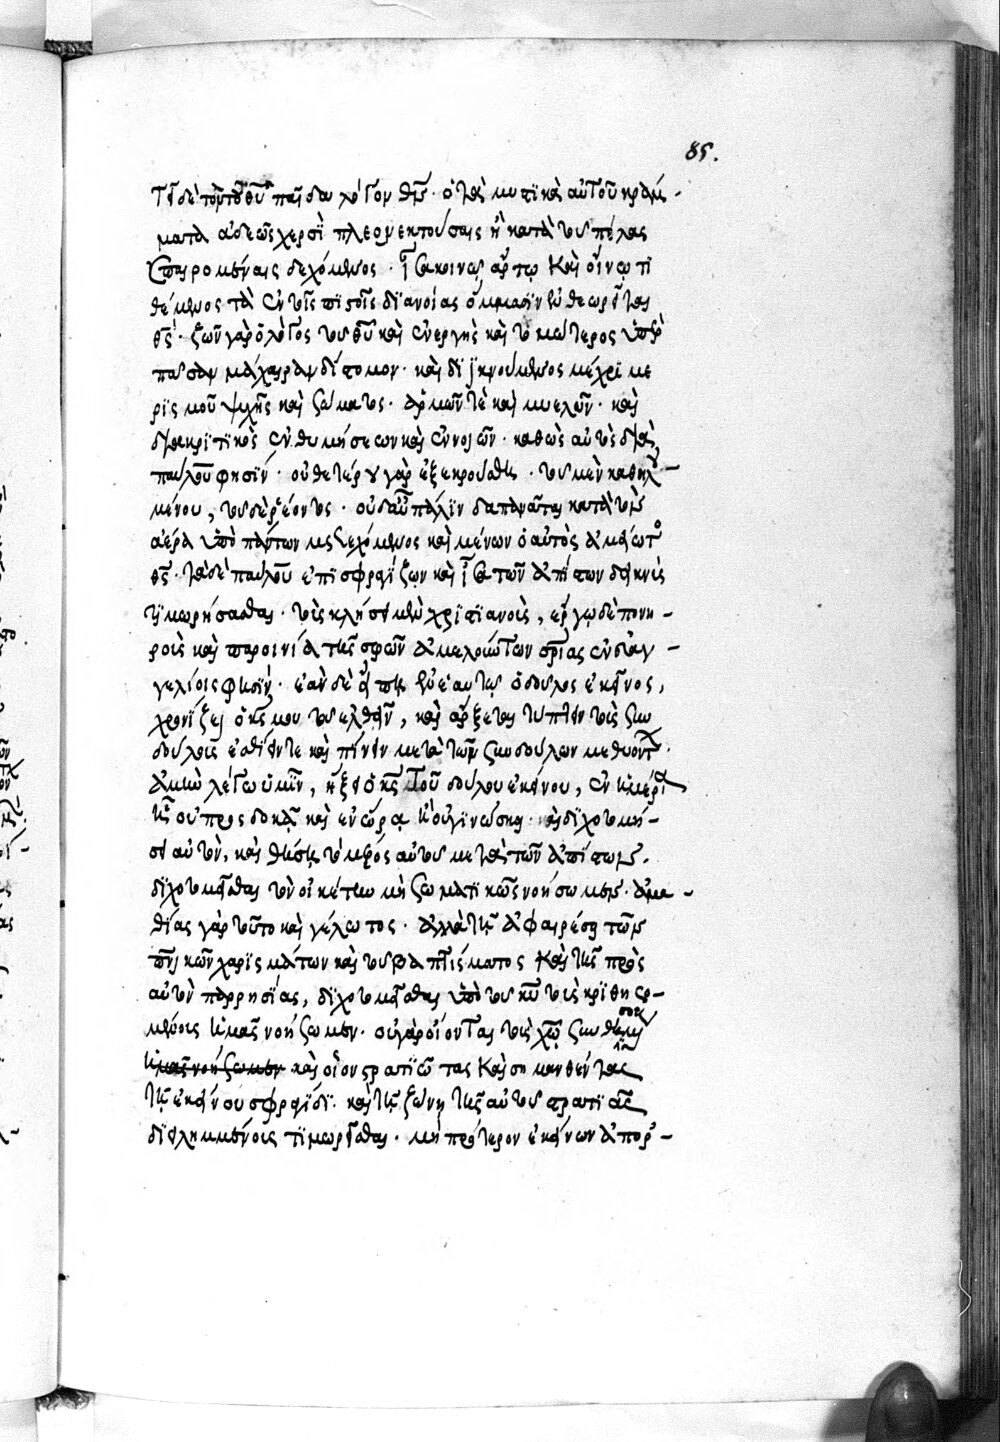 85.
τοῦ θῦ παῖδα λόγον θεὸν· ὁ τὰ μυστικὰ αὐτοῦ κράμ-
ματα ἀδεῶς χερσὶ πλεονεκτούσαις ἢ κατὰ τοῦ πέλας
ἐπαιρομέναις δεχόμενος· ἴσα κοινῷ ἄρτῳ καὶ οἴνῳ τι
θέμενος τὰ ἐν τοῖς πιστοῖς διανοίας ὄμμασιν εὖ θεωρεῖται
θς· ζῶν γὰρ ὁ λόγος τοῦ θῦ καὶ ἐνεργὴς καὶ τομώτερος ὑπὲρ
πᾶσαν μάχαιραν δίστομον· καὶ διϊκνούμενος μέχρι με
ρισμοῦ ψυχῆς καὶ σώματος· ἁρμῶν τὲ καὶ μυελῶν· καὶ
διακριτικὸς ἐνθυμήσεων καὶ ἐννοιῶν· καθὼς αὐτὸς διὰ
παύλου φησίν· οὐθετέρου γὰρ ἐξεκρούσθη· τοῦ μὲν καθημ-
μένου, τοῦ δὲ ῥέοντος· οὐδ' αὖ πάλιν δαπανᾶται κατὰ τὸν
ἀέρα ὑπὸ πάντων μετεχόμενος καὶ μένων ὁ αὐτὸς ἀμείωτος
θς· τὰ δὲ παύλου ἐπισφραγίζων καὶ ἴσα τῶν ἀπίστων δεικνὺς
τιμωρήσασθαι· τοὺς κλήσει μὲν χριστιανοὺς, ἔργῳ δὲ πονη-
ροὺς καὶ παροινία τῆς σφῶν ἀμελοιώτων σριας ἐν εὐαγ-
γελίοις φησίν· ἐὰν δὲ εἴπῃ ἐν ἑαυτῷ ὁ δοῦλος ἐκεῖνος,
χρονίζει ὁ κς μου τοῦ ἐλθεῖν, καὶ ἄρξεται τύπτειν τοὺς συν
δούλους ἐσθίειν τε καὶ πίνειν μετὰ τῶν συνδούλων μεθυόντων·
ἀμὴν λέγω ὑμῖν, ἥξει ὁ κς τοῦ δούλου ἐκείνου, ἐν ἡμέρα
ᾗ οὐ προσδοκᾷ καὶ ἐν ὥρᾳ ᾗ οὐ γινώσκει· καὶ διχοτομή-
σει αὐτὸν, καὶ θήσει τὸ μέρος αὐτοῦ μετὰ τῶν ἀπίστων.
διχοτομεῖσθαι τὸν οἰκέτην μὴ σωματικῶς νοήσωμεν· ἀμα-
θίας γὰρ τοῦτο καὶ γέλωτος· ἀλλὰ τῇ ἀφαιρέσει τῶν
πνικῶν χαρισμάτων καὶ τοῦ βαπτίσματος καὶ τῆς πρὸς
αὐτὸν παρρησίας, διχοτομεῖσθαι ὑπὸ τοῦ κῦ τοὺς κριθησο-
μένους ἡμᾶς νοήσωμεν· οὐ γὰρ οἴονται τοὺς χῶ συν θαση
ἡμᾶς νοήσωμεν καὶ οἷον στρατιώτας καὶ σημανθέντας
τῇ ἐκείνου σφραγίδι· καὶ τῇ ζώνῃ τῆς αὐτοῦ στρατιᾶς
διειλημμένους τιμωρεῖσθαι· μὴ πρότερον ἐκείνων ἀπορ-